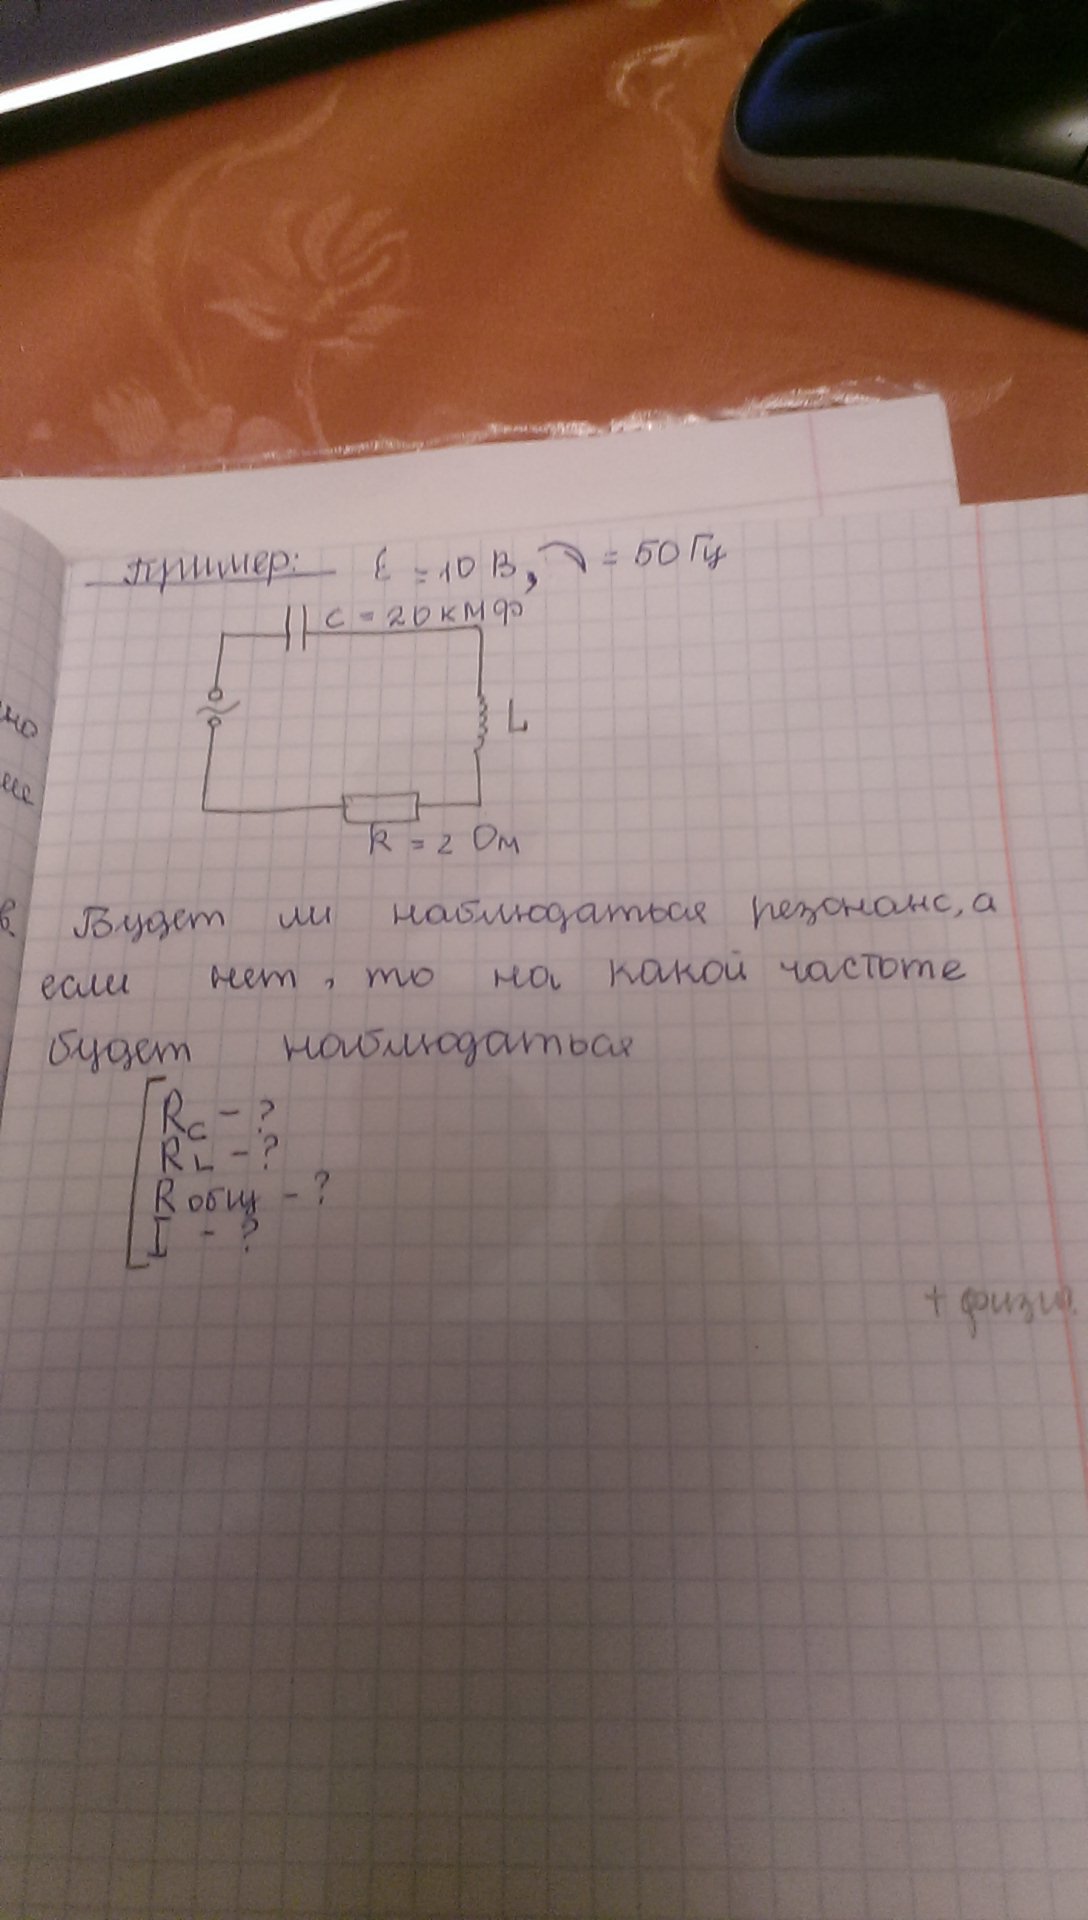 Пример: Ɛ = 10 В, ν = 50 Гц
C = 20 кмф
~
L
R = 2 Ом
но
в.
Будет ли наблюдаться резонанс, а
если нет, то на какой частоте
будет наблюдаться
Rc - ?
RL - ?
Rобщ - ?
I - ?
+ физи